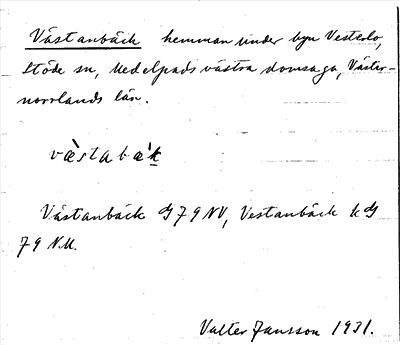 Västanbäck hemman under byn Vesterlo,
Stöde sn, Medelpads västra domsaga, Väster-
norrlands län.
væ̀stabæ̀k
Västanbäck G 79 NV, Vestanbäck k G
79 N.V.
Valter Jansson 1931.